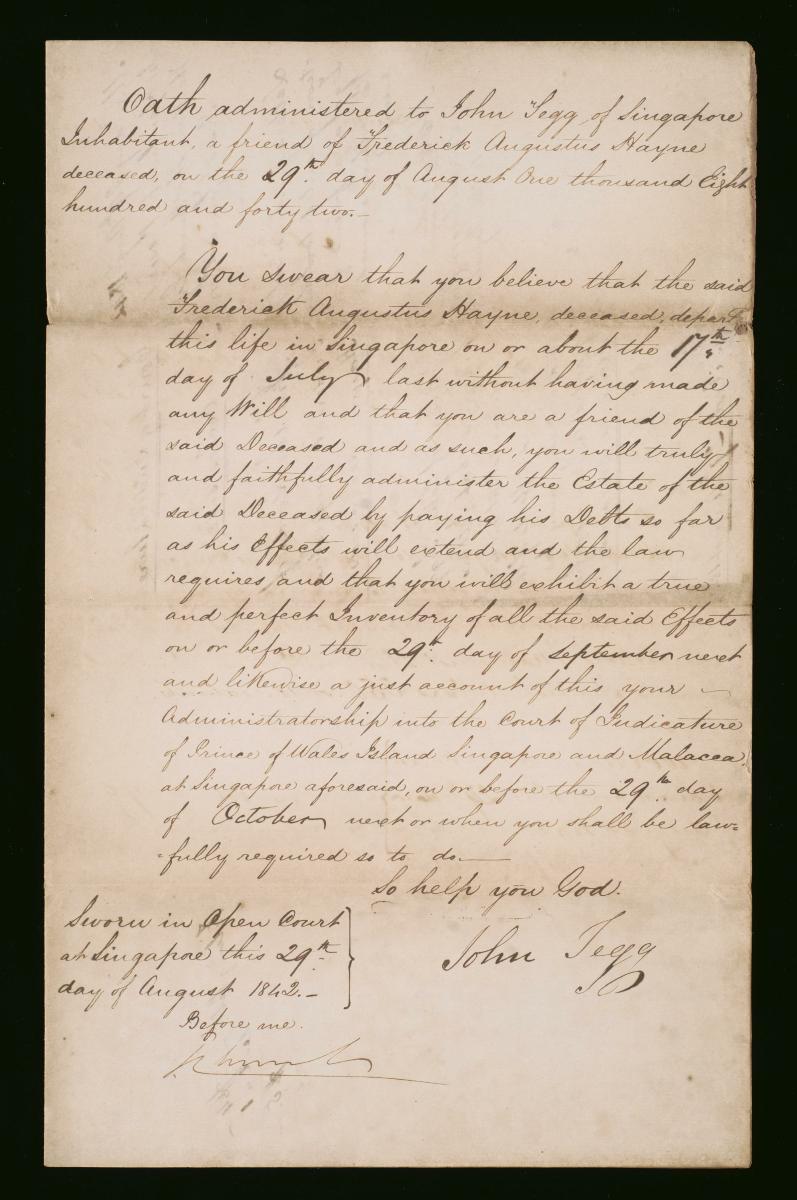 Oath administered to John Tegg of Singapore
Inhabitant, a friend of Frederick Augustus Hayne
deceased, on the 29th. day of August One thousand Eight
hundred and forty two.—
You swear that you believe that the said
Frederick Augustus Hayne, deceased, depart
this life in Singapore on or about the 17th
day of July last without having made
any Will and that you are a friend of the
said Deceased and as such, you will truly
and faithfully administer the Estate of the
said Deceased by paying his Debts so far
as his Effects will extend and the law
requires and that you will exhibit a true
and perfect Inventory of all the said Effects
on or before the 29th. day of September next
and likewise a just account of this your —
Administratorship into the Court of Judicature
of Prince of Wales Island Singapore and Malacca.
at Singapore aforesaid, on or before the 29th. day
of October next or when you shall be law=
=fully required so to do.—
So help you God.
Sworn in Open Court
at Singapore this 29th.
day of August 1842.—
John Tegg
Before me.